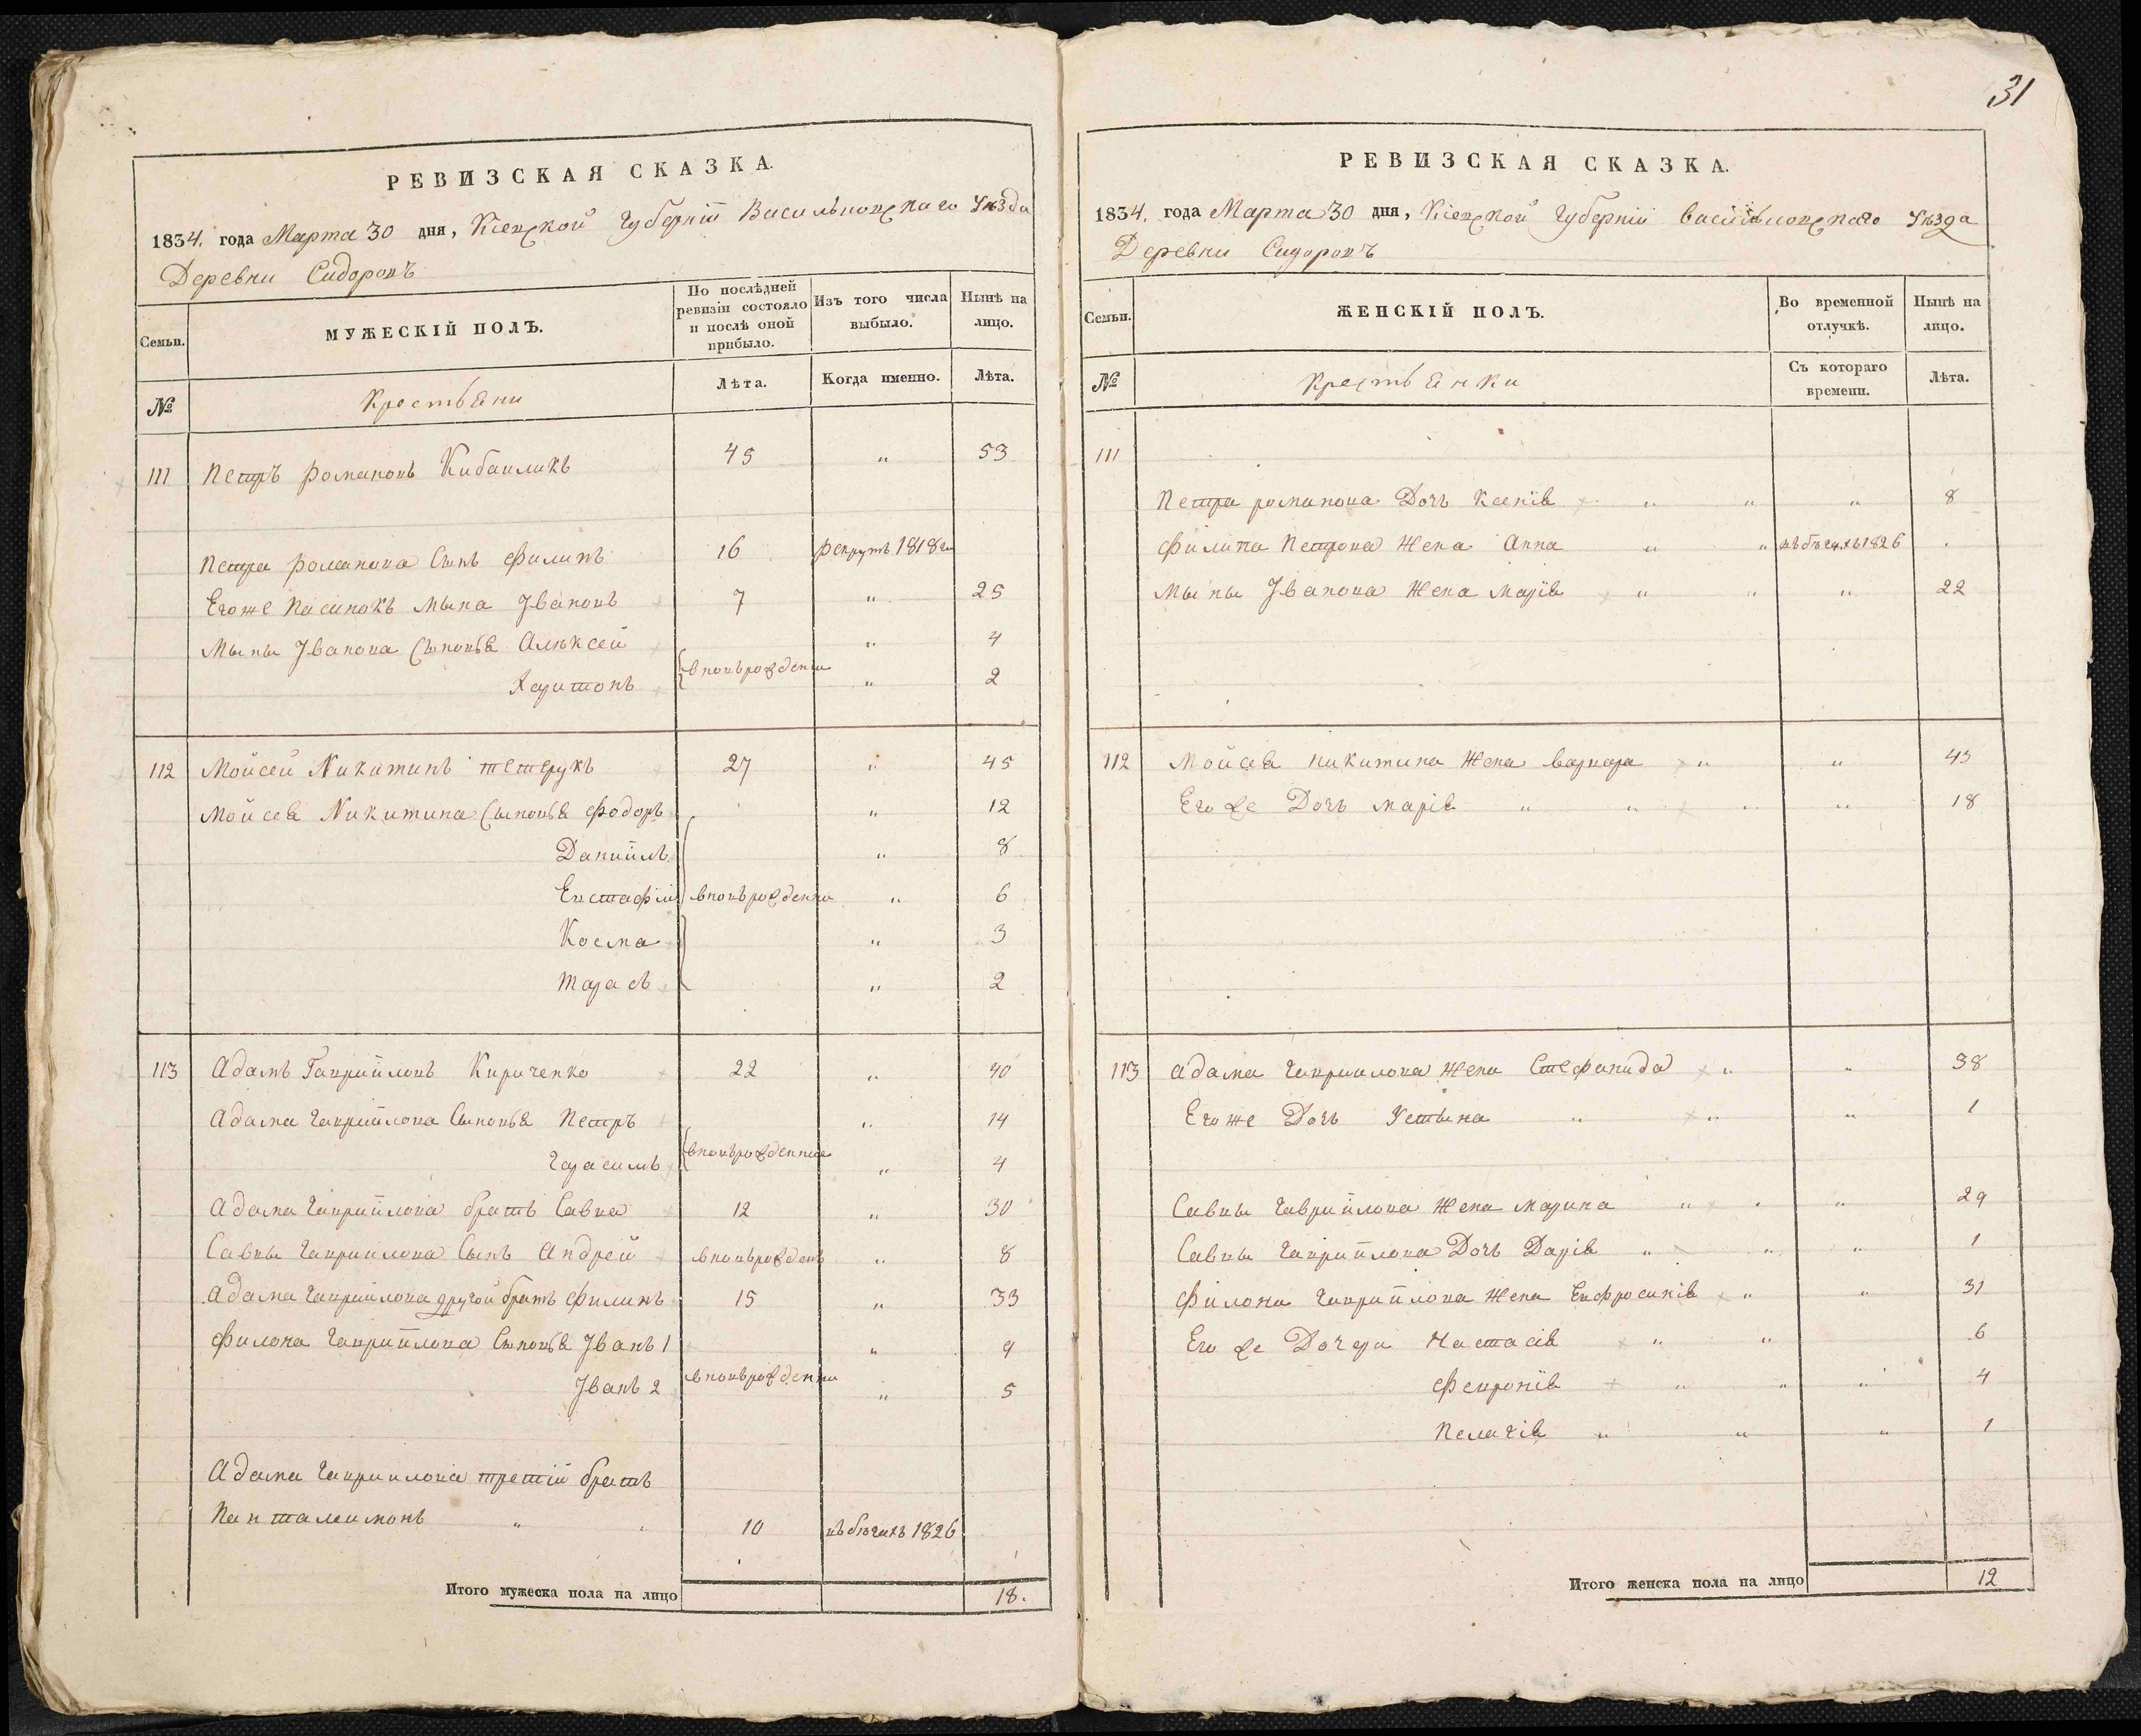 31
РЕВИЗСКАЯ СКАЗКА.
1834. года Марта 30 дня, Кіевской Губерніи Васильковскаго Уѣзда
Деревни Сидоровъ
Семьи.
МУЖЕСКІЙ ПОЛЪ.
По послѣдней ревизіи состояло и послѣ оной прибыло.
Изъ того числа выбыло.
Нынѣ на лицо.
№
Крестьяни
Лѣта.
Когда именно.
Лѣта.
111 Петръ романовъ 45 " 53
Петра романова Сынъ Филипъ 16 рекрутъ 1818го
Егоже Пасинокъ Мына Ивановъ 7 " 25
Мыны Иванова Сыновья Алѣксей " 4
Харитонъ вновьрождени " 2
112 Мойсей Никитинъ тетерукъ 27 " 45
Мойсея Никитина Сыновья Фодоръ " 12
Даніилъ " 8
Евстафій вновьрождени " 6
Косма " 3
Тарасъ " 2
113 Адамъ Гавриловъ Кириченко 22 " 40
Адама гаврійлова Сыновья Петръ " 14
Герасимъ вновьрожденни " 4
Адама гаврійлова братъ Савва 12 " 30
Саввы гавриилова Сынъ Андрей вновьрожденъ " 8
Адама гаврійлова другой братъ Филипъ 15 " 33
Филона гаврийлова Сыновья Иванъ 1 " 9
Иванъ 2 вновьрождени " 5
Адама гавриилова третій братъ
Панталеимонъ " " 10 въ бѣгахъ 1826
Итого мужеска пола на лицо 18.
РЕВИЗСКАЯ СКАЗКА.
1834. года Марта 30 дня, Кіевской Губерніи Васильковскаго Уѣзда
Деревни Сидоровъ
Семьи.
ЖЕНСКІЙ ПОЛЪ.
Во временной отлучкѣ.
Нынѣ на лицо.
№
Крестьянки
Съ котораго времени.
Лѣта.
111
Петра романова Дочъ Ксенія " " " 8
Филипа Петрова Жена Анна " " въ бѣгахъ 1826
Мыны Иванова Жена Марія " " " 22
112 Мойсея никитина Жена варвара " " 43
Егоже Дочъ марія " " " " 18
113 Адама гавриилова Жена Стефанида " " 38
Егоже Дочъ Устына " " " 1
Саввы гаврийлова Жена Марина " " 29
Саввы гаврийлова Дочъ Дарія " " " 1
Филона гаврийлова Жена Евфросинія " " 31
Егоже Дочери Настасія " " 6
Февронія " " " 4
Пелагія " " " 1
Итого женска пола на лицо 12